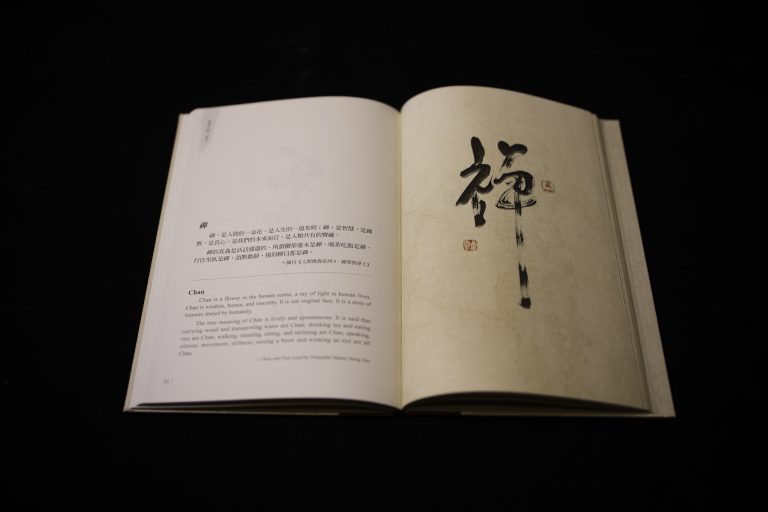 禪
禪，是人間的一朵花，是人生的一道光明；禪，是智慧，是幽
默，是真心，是我們的本來面目，是人類共有的寶藏。
禪的真義是活活潑潑的，所謂搬柴運水是禪，喝茶吃飯是禪，
行住坐臥是禪，語默動靜，揚眉瞬目都是禪。
Chan
Chan is a flower in the human realm, a ray of light in human lives.
Chan is wisdom, humor, and sincerity. It is our original face. It is a store of
treasure shared by humanity.
The true meaning of Chan is lively and spontaneous. It is said that
carrying wood and transporting water are Chan; drinking tea and eating
rice are Chan; walking, standing, sitting, and reclining are Chan; speaking,
silence, movement, stillness, raising a brow and winking an eye are all
Chan.
— Chan and Pure Land by Venerable Master Hsing Yun
禪